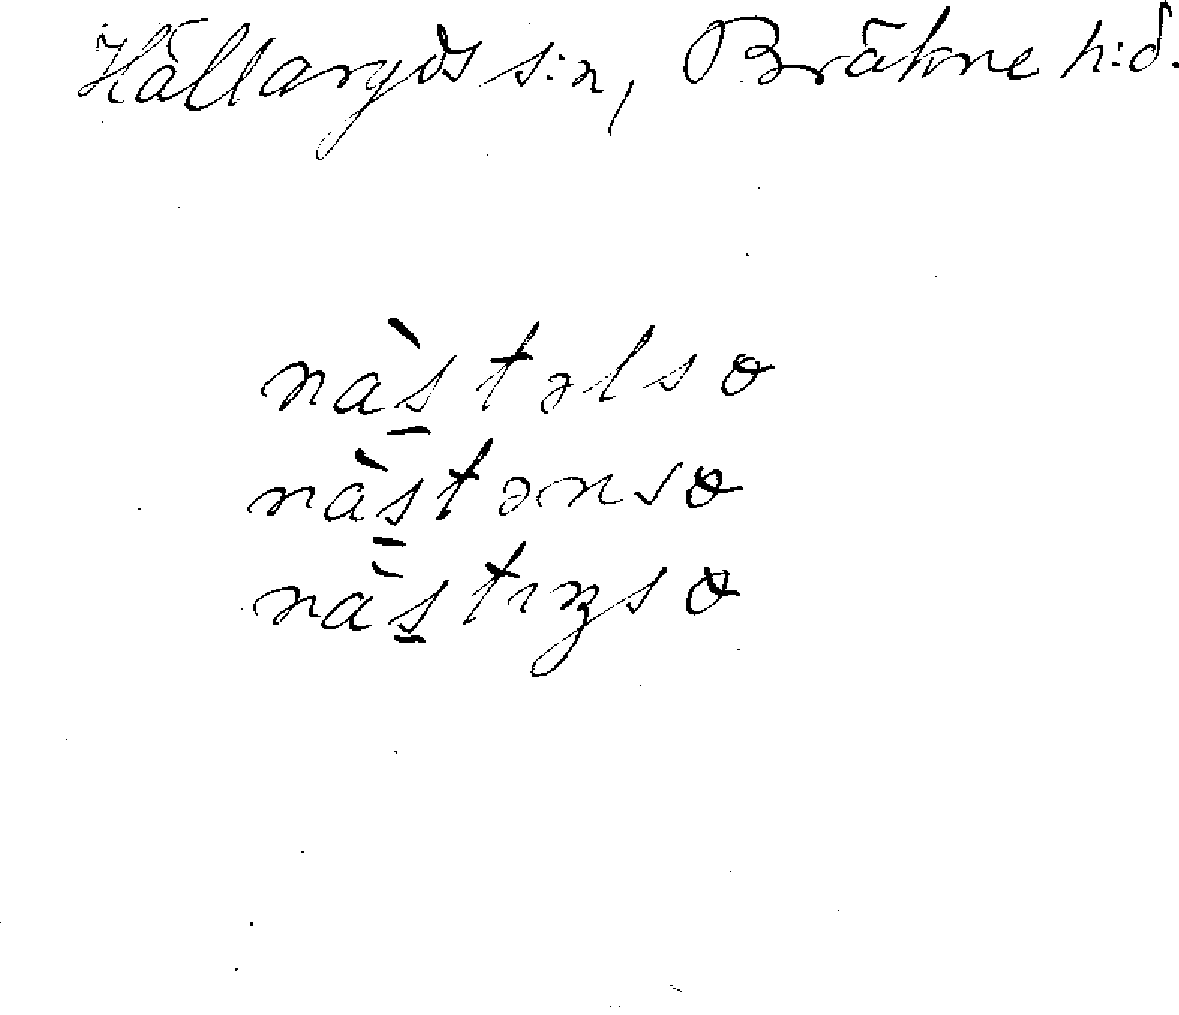 Hållaryds s:n, Bräkne h:d.
nàs̱təlsơ
nàs̱tənsơ
nàs̱tıŋsơ